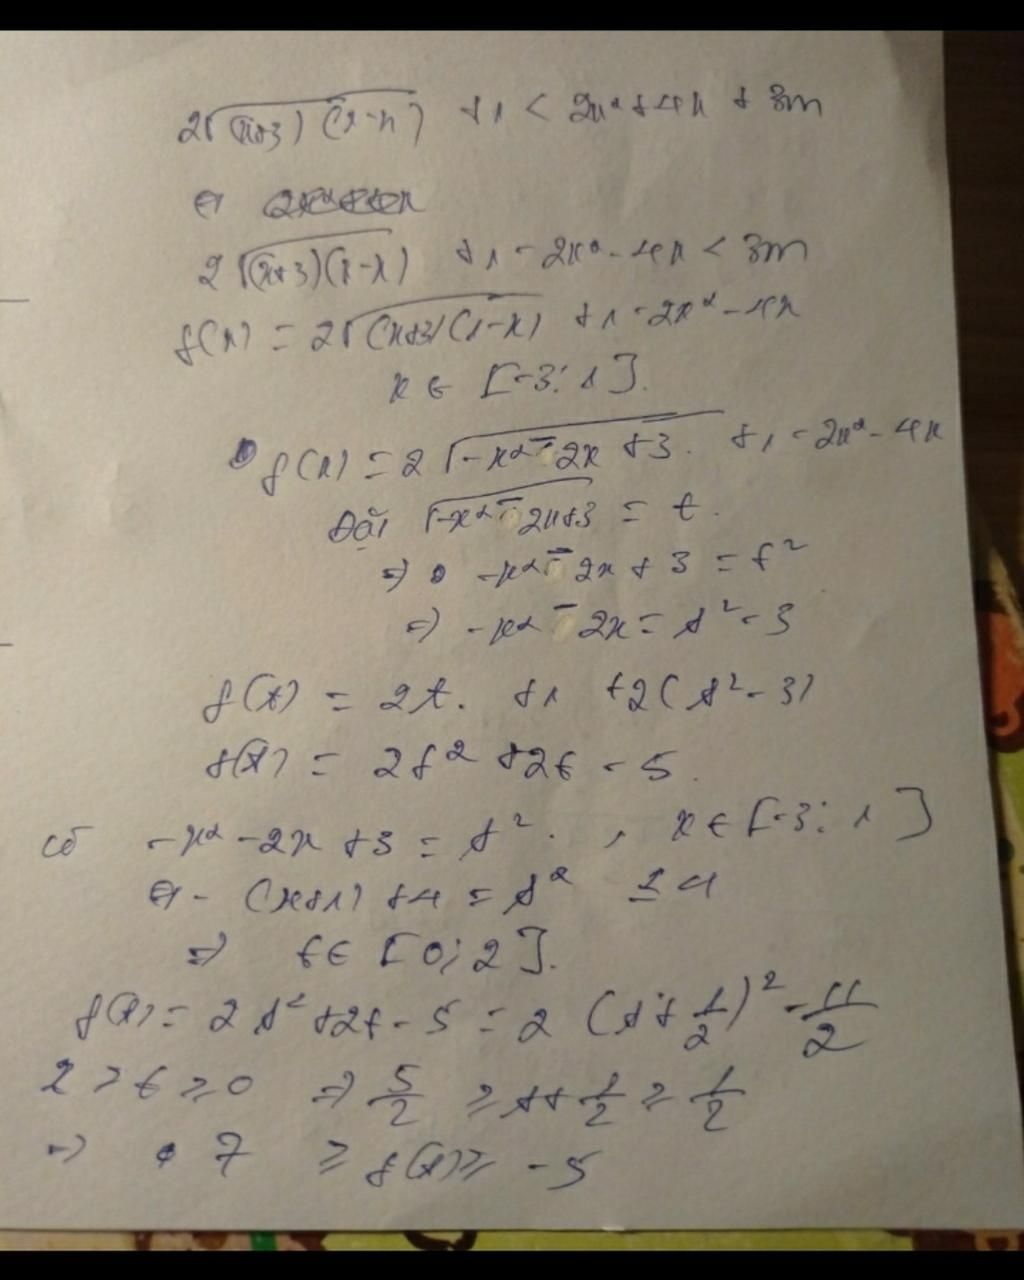 2√(x+3)(1-x) + 1 < 2x² + 4x + 3m
⇔
2√(x+3)(1-x) + 1 - 2x² - 4x < 3m
f(x) = 2√(x+3)(1-x) + 1 - 2x² - 4x
x ∈ [-3; 1].
f(x) = 2√-x² - 2x + 3 . + 1 - 2x² - 4x
Đặt √-x² - 2x+3 = t.
⇒ -x² - 2x + 3 = t²
⇒ -x² - 2x = t² - 3
f(t) = 2t. + 1 + 2(t² - 3)
f(t) = 2t² + 2t - 5.
có -x² - 2x + 3 = t². , x ∈ [-3; 1]
⇔ - (x+1) + 4 = t² ≤ 4
⇒ t ∈ [0; 2].
f(t) = 2t² + 2t - 5 = 2 (t + 1/2)² - 11/2
2 ≥ t ≥ 0 ⇒ 5/2 ≥ t + 1/2 ≥ 1/2
⇒ 7 ≥ f(t) ≥ -5